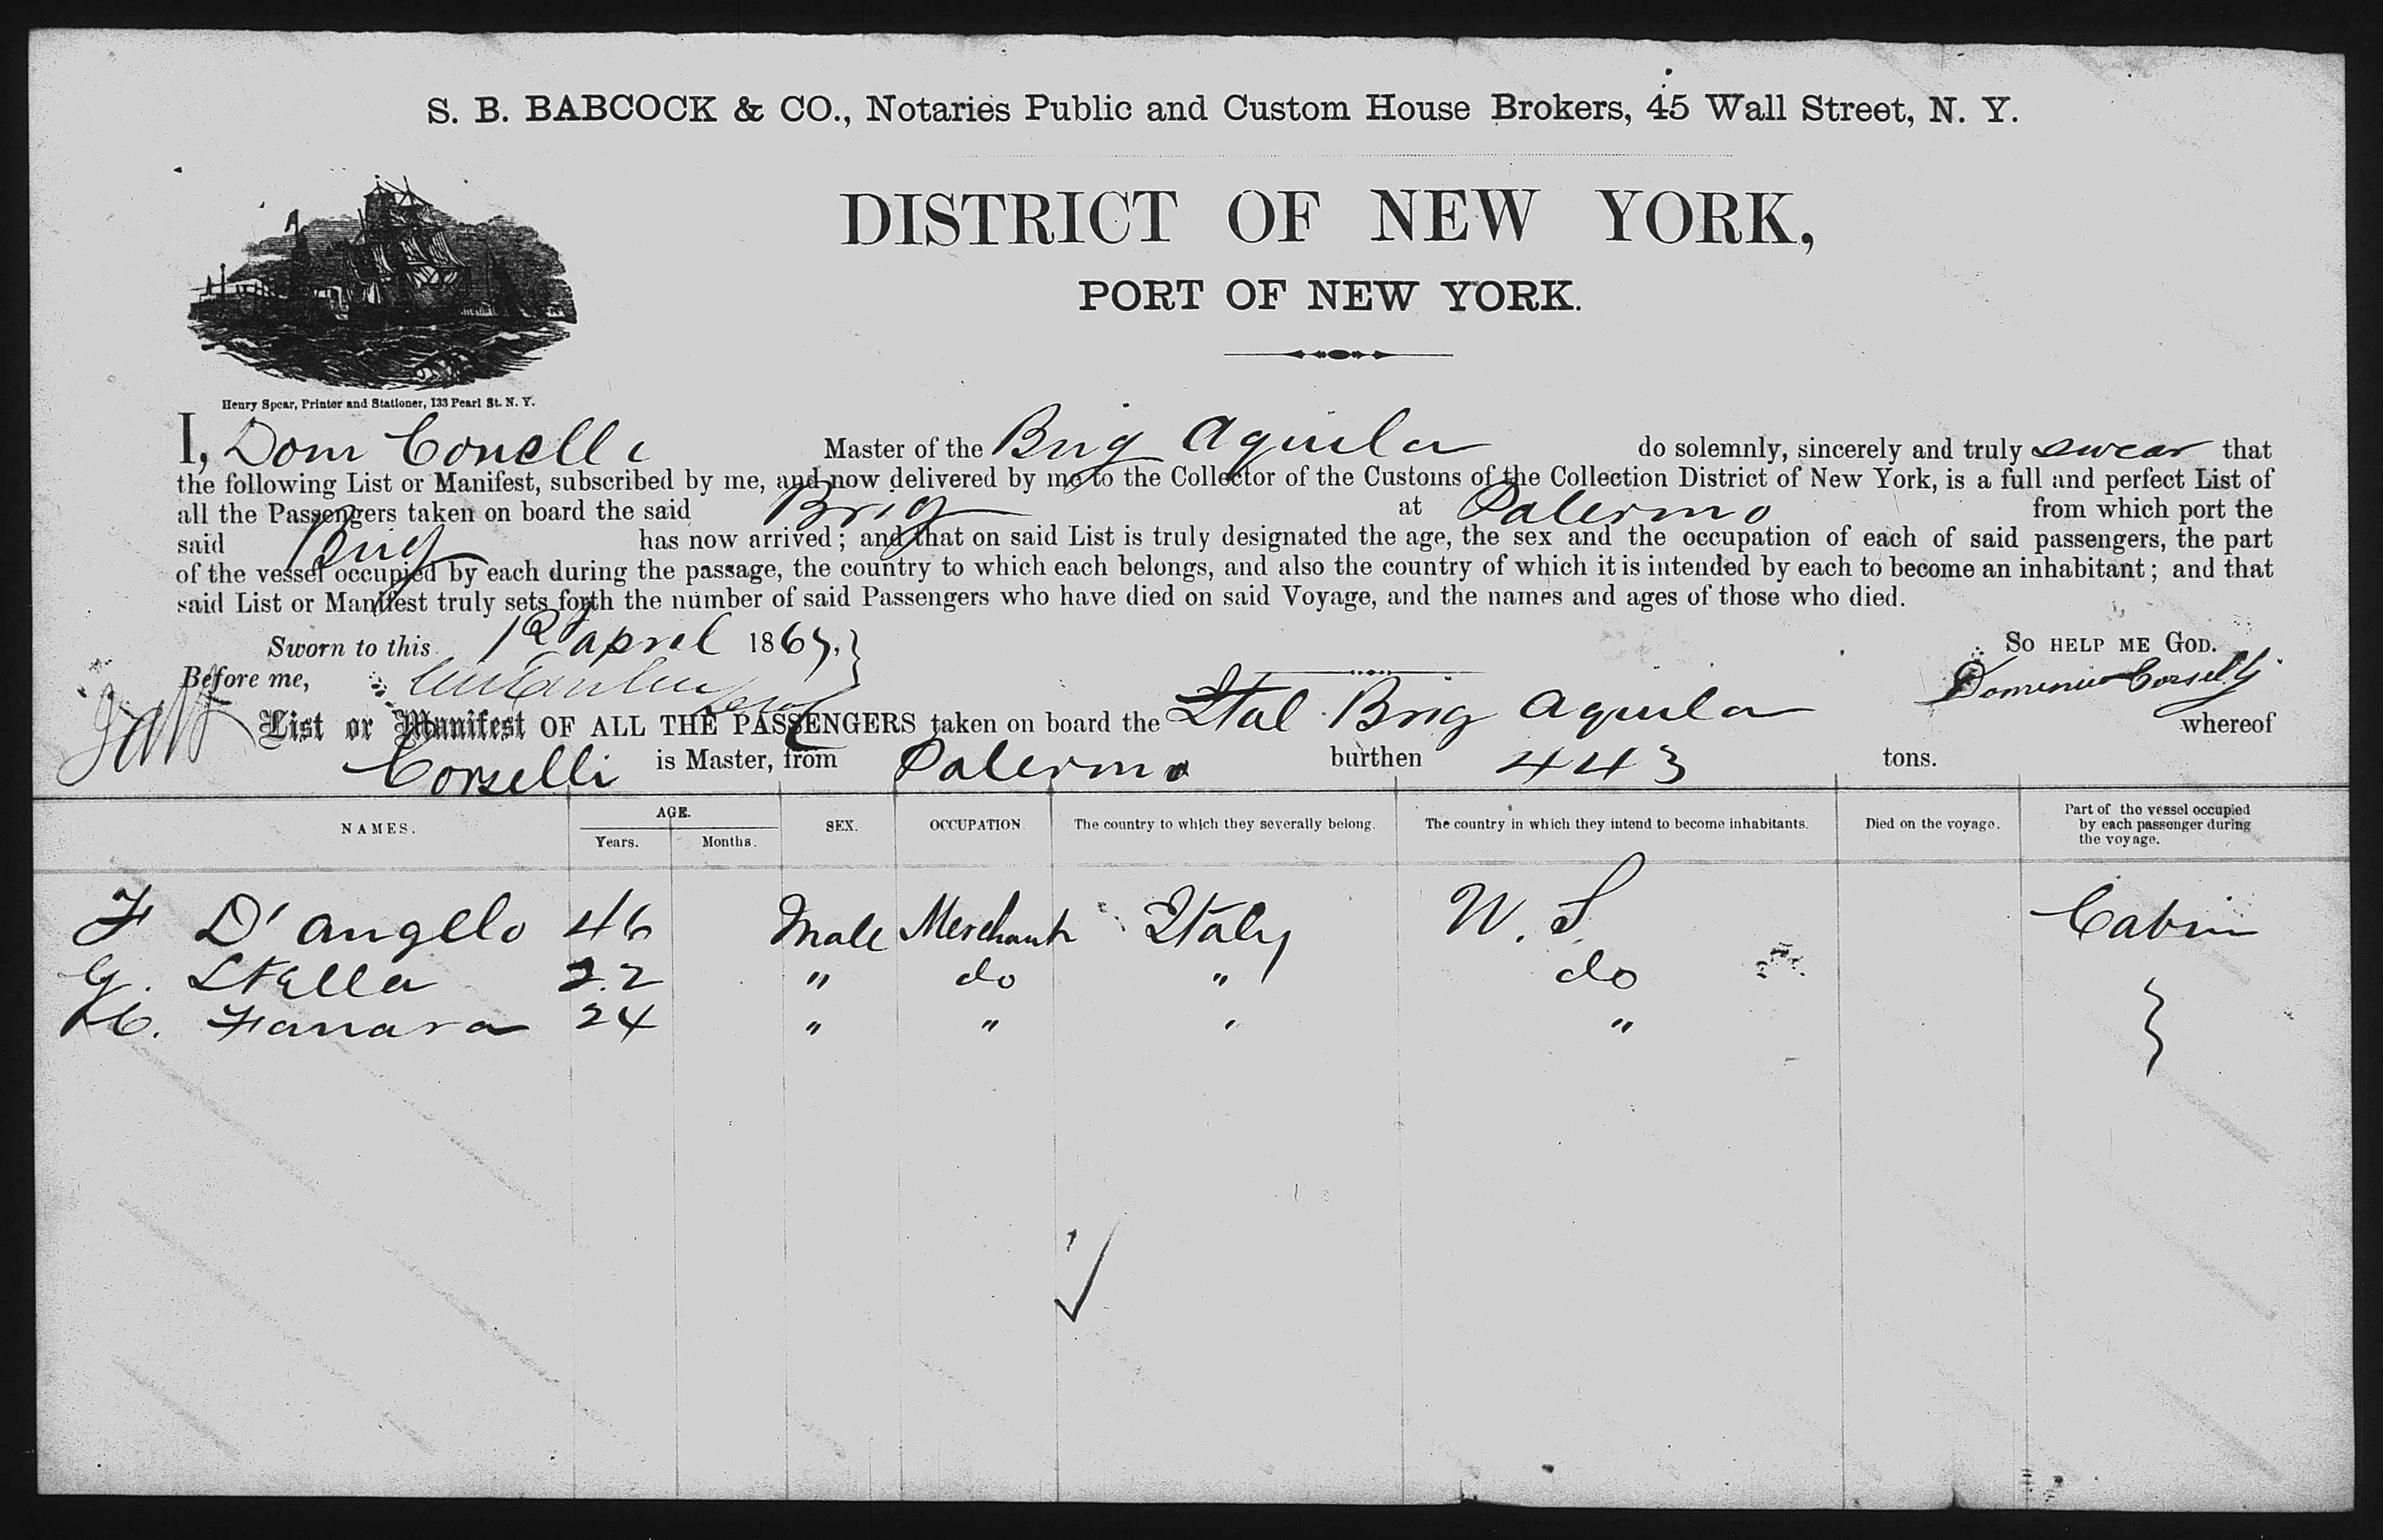 S. B. BABCOCK & CO., Notaries Public and Custom House Brokers, 45 Wall Street, N. Y.
DISTRICT OF NEW YORK,
PORT OF NEW YORK.
Henry Spear, Printer and Stationer, 133 Pearl St. N. Y.
I, Dom Corselli Master of the Brig Aquila do solemnly, sincerely and truly swear that
the following List or Manifest, subscribed by me, and now delivered by me to the Collector of the Customs of the Collection District of New York, is a full and perfect List of
all the Passengers taken on board the said Brig at Palermo from which port the
said Brig has now arrived; and that on said List is truly designated the age, the sex and the occupation of each of said passengers, the part
of the vessel occupied by each during the passage, the country to which each belongs, and also the country of which it is intended by each to become an inhabitant; and that
said List or Manifest truly sets forth the number of said Passengers who have died on said Voyage, and the names and ages of those who died.
Sworn to this 12 April 1867. So HELP ME GOD.
Before me, Domenico Corselli
List or Manifest OF ALL THE PASSENGERS taken on board the Ital Brig Aquila whereof
Corselli is Master, from Palermo burthen 443 tons.
NAMES. AGE. Years. Months. SEX. OCCUPATION. The country to which they severally belong. The country in which they intend to become inhabitants. Died on the voyage. Part of the vessel occupied by each passenger during the voyage.
F D'Angelo 46 Male Merchant Italy U. S Cabin
G. Stella 22 " do " do
C. Fanara 24 " " " " }